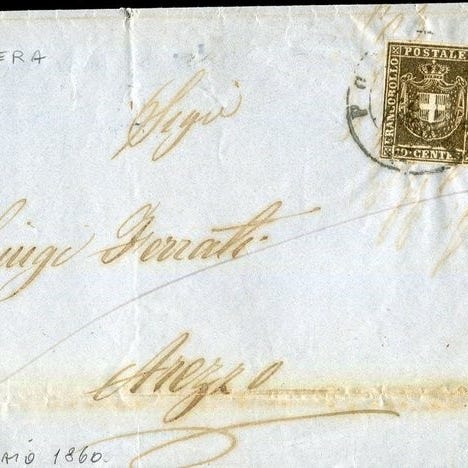 ERA
FRANCOBOLLO
POSTALE
CENT
PO
Sigri
uigi Ferrati
Arezzo
AIO 1860.